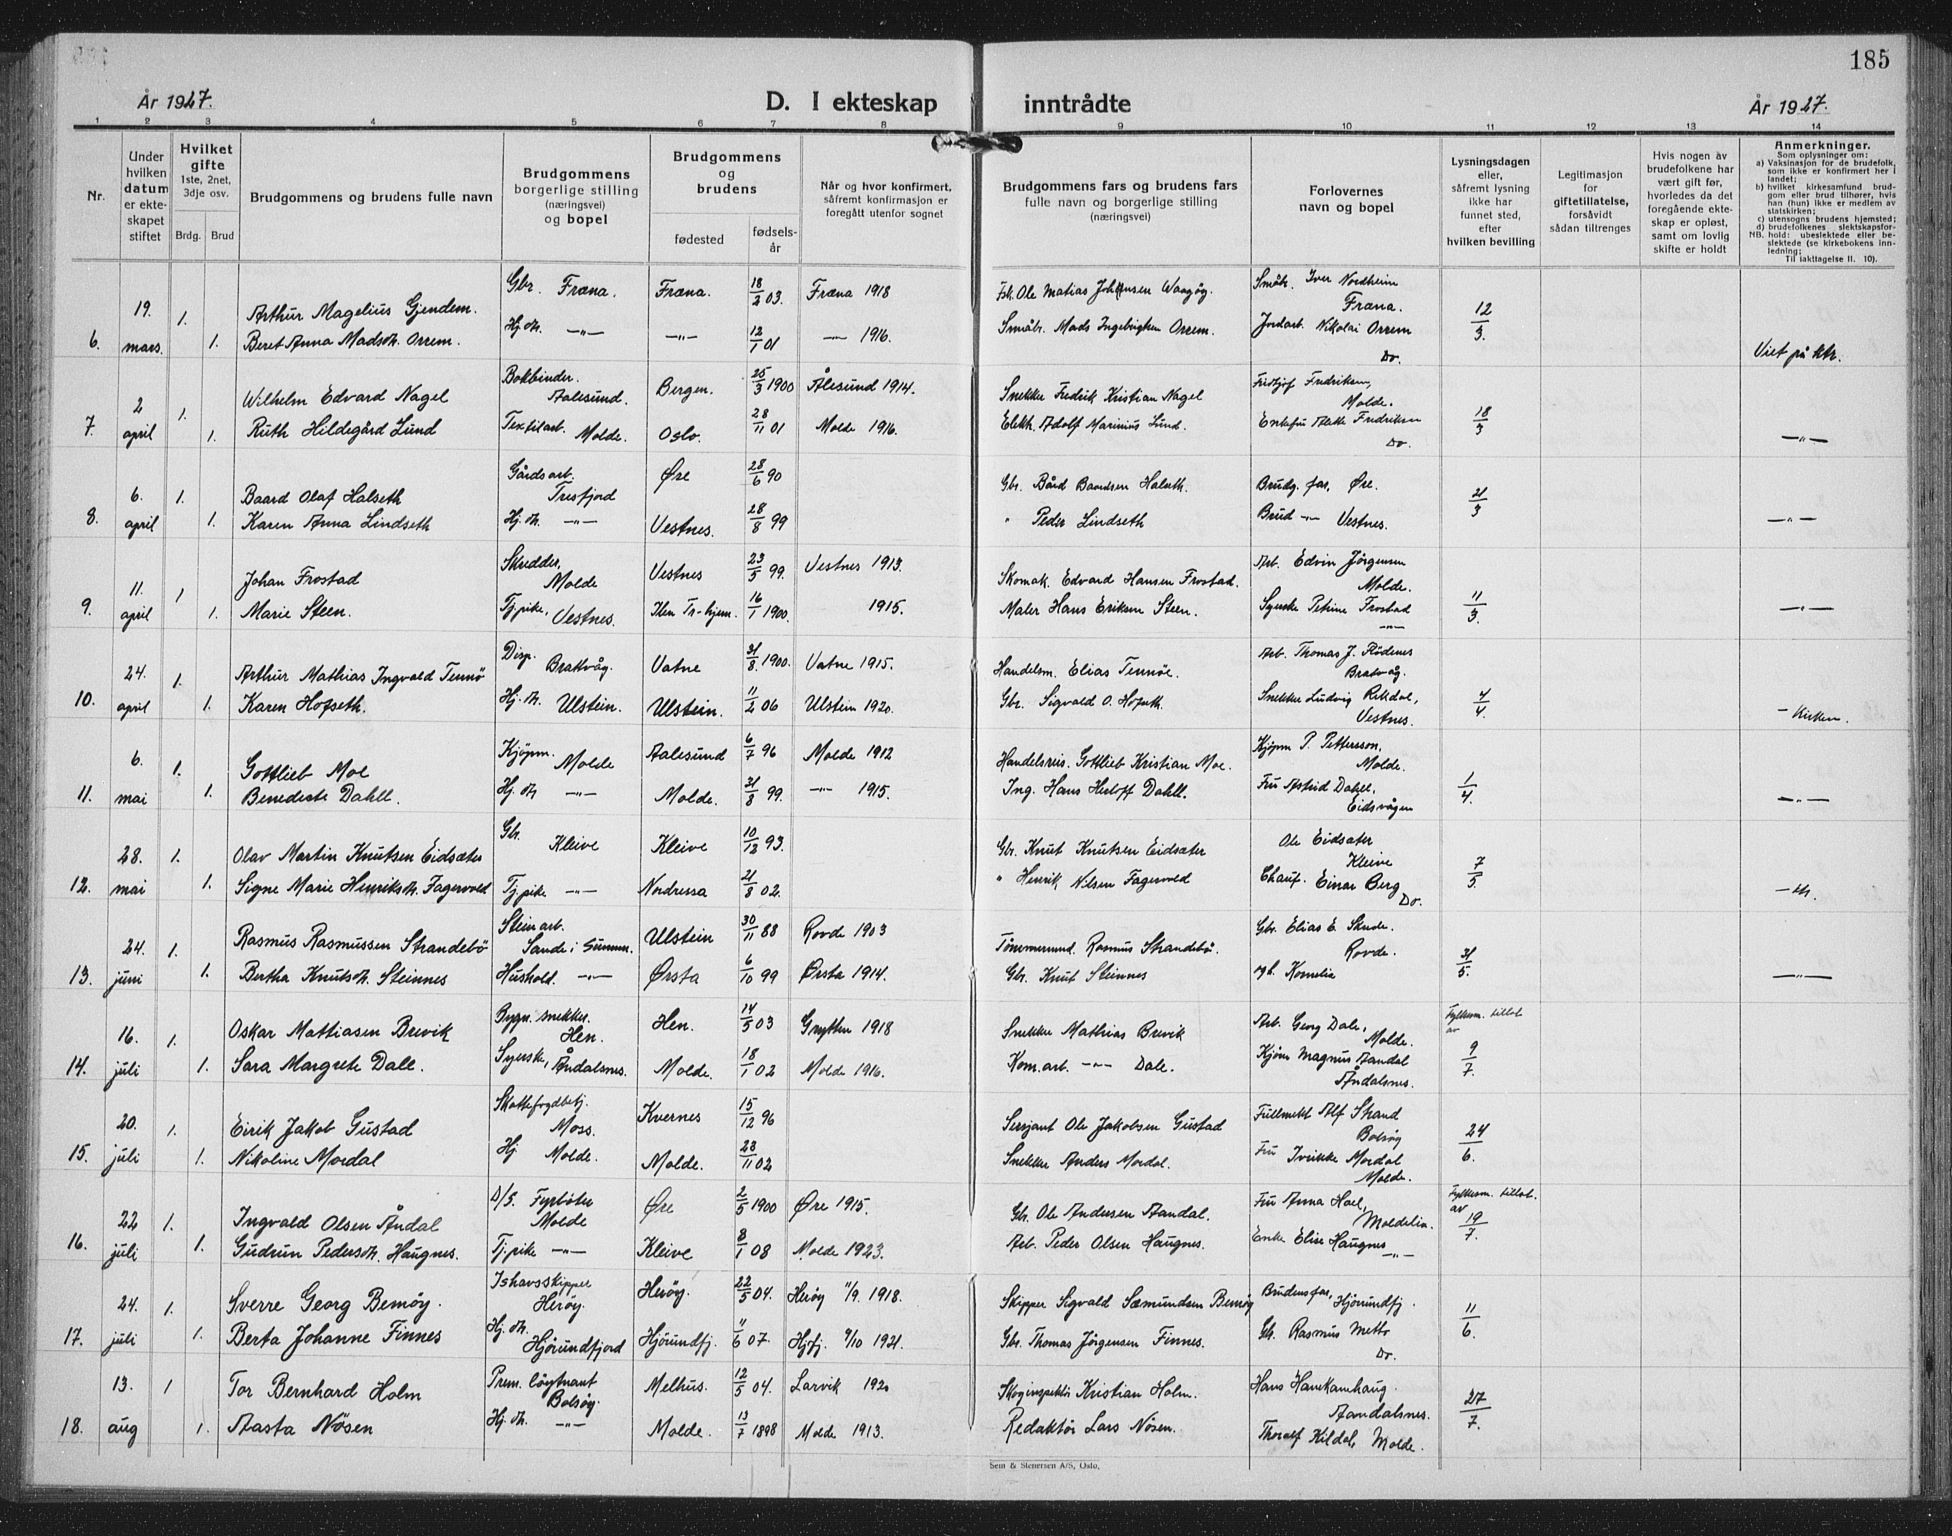 185
År 1927.
D. I ekteskap inntrådte
År 1927.
1 2 3 4 5 6 7 8 9 10 11 12 13 14
Nr.
Under hvilken datum er ekteskapet stiftet
Hvilket gifte 1ste, 2net, 3dje osv.
Brdg. Brud
Brudgommens og brudens fulle navn
Brudgommens borgerlige stilling (næringsvei) og bopel
Brudgommens og brudens
fødested
fødselsår
Når og hvor konfirmert, såfremt konfirmasjon er foregått utenfor sognet
Brudgommens fars og brudens fars fulle navn og borgerlige stilling (næringsvei)
Forlovernes navn og bopel
Lysningsdagen eller, såfremt lysning ikke har funnet sted, efter hvilken bevilling
Legitimasjon for giftetillatelse, forsåvidt sådan tiltrenges
Hvis nogen av brudefolkene har vært gift før, hvorledes da det foregående ekteskap er opløst, samt om lovlig skifte er holdt
Anmerkninger.
Som oplysninger om:
a) Vaksinasjon for de brudefolk, som ikke er konfirmert her i landet;
b) hvilket kirkesamfund brudgom eller brud tilhører, hvis han (hun) ikke er medlem av statskirken;
c) utensogns brudens hjemsted;
d) brudefolkenes slektskapsforhold: ubeslektede eller beslektede (se kirkebokens innledning;
NB.
Til iakttagelse II. 10).
19. 1. Arthur Magelius Gjendem. Gbr. Fræna. Fræna. 18/2 03. Fræna 1918 Fsk. Ole Matias Johansen Waagøy. Småbr. Iver Nordheim Fræna. 12/3.
6. mars. 1. Beret Anna Madsdt. Orrem. Hj. dt. —"— —"— 12/1 01 —"— 1916. Småbr. Mads Ingebrigtsen Orrem. Jordarb. Nikolai Orrem Do. Viet på ktr.
2 1. Wilhelm Edvard Nagel Bokbinder. Aalesund. Bergen. 25/3 1900 Ålesund 1914. Snekker Fredrik Kristian Nagel Fridtjof Fredriksen, Molde. 18/3
7. april 1. Ruth Hildegård Lund Textilarb. Molde. Oslo. 28/11 01 Molde 1916. Elektr. Adolf Marinius Lund. Enkefru Fredriksen Do. —"—
6. 1. Baard Olaf Halseth Gårdsarb. Tresfjord Øre 28/6 90 Gbr. Bård Baardsen Halseth. Brudg. far, Øre. 21/3
8. april 1. Karen Anna Lindseth Hj. dt. —"— Vestnes. 28/8 99 " Peder Lindseth Brud —"— Vestnes. —"—
11. 1. Johan Frostad Skredder, Molde Vestnes 23/5 99. Vestnes 1913. Skomak. Edvard Hansen Frostad. Arb. Edvin Jörgensen Molde. 11/3.
9. april 1. Marie Steen. Tj.pike, Vestnes. 16/1 1900. 1915. Maler Hans Eriksen Steen. Syerske Petrine Frostad —"— —"—
24. 1. Arthur Mathias Ingvald Tennö Disp. Brattvåg. Vatne 31/8 1900. Vatne 1915. Handelsm. Elias Tennöe. Arb. Thomas J. Brattvåg. 4/4.
10. april 1. Karen Hofseth. Hj. dt. Ulstein. Ulstein. 11/2 06 Ulstein 1920. Gbr. Sigvald O. Hofseth. Snekker Ludvig Rekdal, Vestnes. — Kirken.
6. 1. Gottlieb Moe Kjöpm. Molde Aalesund 6/7 96 Molde 1912 Handelsreis. Gottlieb Kristian Moe. Kjöpm P. Pettersson, Molde. 1/4.
11. mai 1. Benedicte Dahll. Hj. dt —"— Molde. 31/8 99. —"— 1915. Ing. Hans Herloff Dahll. Fru Astrid Dahll, Eidsvågen —"—
28. 1. Olav Martin Knutsen Eidsæter Gbr. Kleive Kleive 10/12 93. Gbr. Knut Knutsen Eidsæter Ole Eidsæter Kleive 7/5
12. mai 1. Signe Marie Henriksdt. Fagervold Tj.pike —"— Nordressa 21/8 02. " Henrik Nilsen Fagervold Chauf. Einar Berg Do. — ktr.
24. 1. Rasmus Rasmussen Strandebö Steinarb. Sande i Sunnm. Ulstein 30/11 88 Rovde 1903 Tömmermd. Rasmus Strandebö Gbr. Elias E. Rovde. 31/5.
13. juni 1. Bertha Knutsdt. Steinnes Hushold. —"— Ørsta 6/10 99 Ørsta 1914. Gbr. Knut Steinnes Kornelia —"—
16. 1. Oskar Mattiasen Brevik Bygn. snekker. Hen. Hen. 14/5 03 Grytten 1918 Snekker Mathias Brevik Arb. Georg Dale, Molde. Fylkesm. tillat. av 9/7.
14. juli 1. Sara Margrete Dale. Syerske, Åndalsnes. Molde. 18/1 02 Molde 1916. Kom.arb. —"— Dale. Kjöpm Magnus Aandal Åndalsnes.
20. 1. Eirik Jakob Gustad Skattefogdbetj. Moss. Kvernes 15/12 96 Sersjant Ole Jakobsen Gustad Fullmekt Alf Strand Bolsöy 24/6.
15. juli 1. Nikoline Mordal Hj Molde. Molde. 23/11 02 Snekker Anders Mordal. Fru Mordal Molde.
22 1. Ingvald Olsen Åndal D/S. Fyrböter Molde Øre 2/5 1900 Øre 1915. Gbr. Ole Andersen Aandal. Fru Anna Hoel, Moldelia. Fylkesm. tillat. av 19/7.
16. juli 1. Gudrun Pedersdt. Haugnes. Tj.pike —"— Kleive 8/1 08 Molde 1923. Arb. Peder Olsen Haugnes. Enke Elise Haugnes —"—
24. 1. Sverre Georg Bemöy. Ishavsskipper Heröy. Heröy. 22/5 04. Heröy 11/9. 1918. Skipper Sigvald Sæmundsen Bemöy Brudens far, Hjörundfj. 11/6.
17. juli 1. Berta Johanne Finnes Hj. dt. Hjörundfjord Hjörundfj. 11/6 07. Hjfj. 9/10 1921. Gbr. Thomas Jörgensen Finnes. Gbr. Rasmus Do.
13. 1 Tor Bernhard Holm Prem. löytnant Bolsöy. Melhus. 12/5 04. Larvik 1920 Skoginspektör Kristian Holm. Hans Hanekamhaug. Aandalsnes. 27/7.
18. aug 1. Aasta Nösen Hj. dt. —"— Molde. 13/7 1898 Molde 1913. Redaktör Lars Nösen. Thoralf Kildal, Molde.
Sem & Stenersen A/S, Oslo.